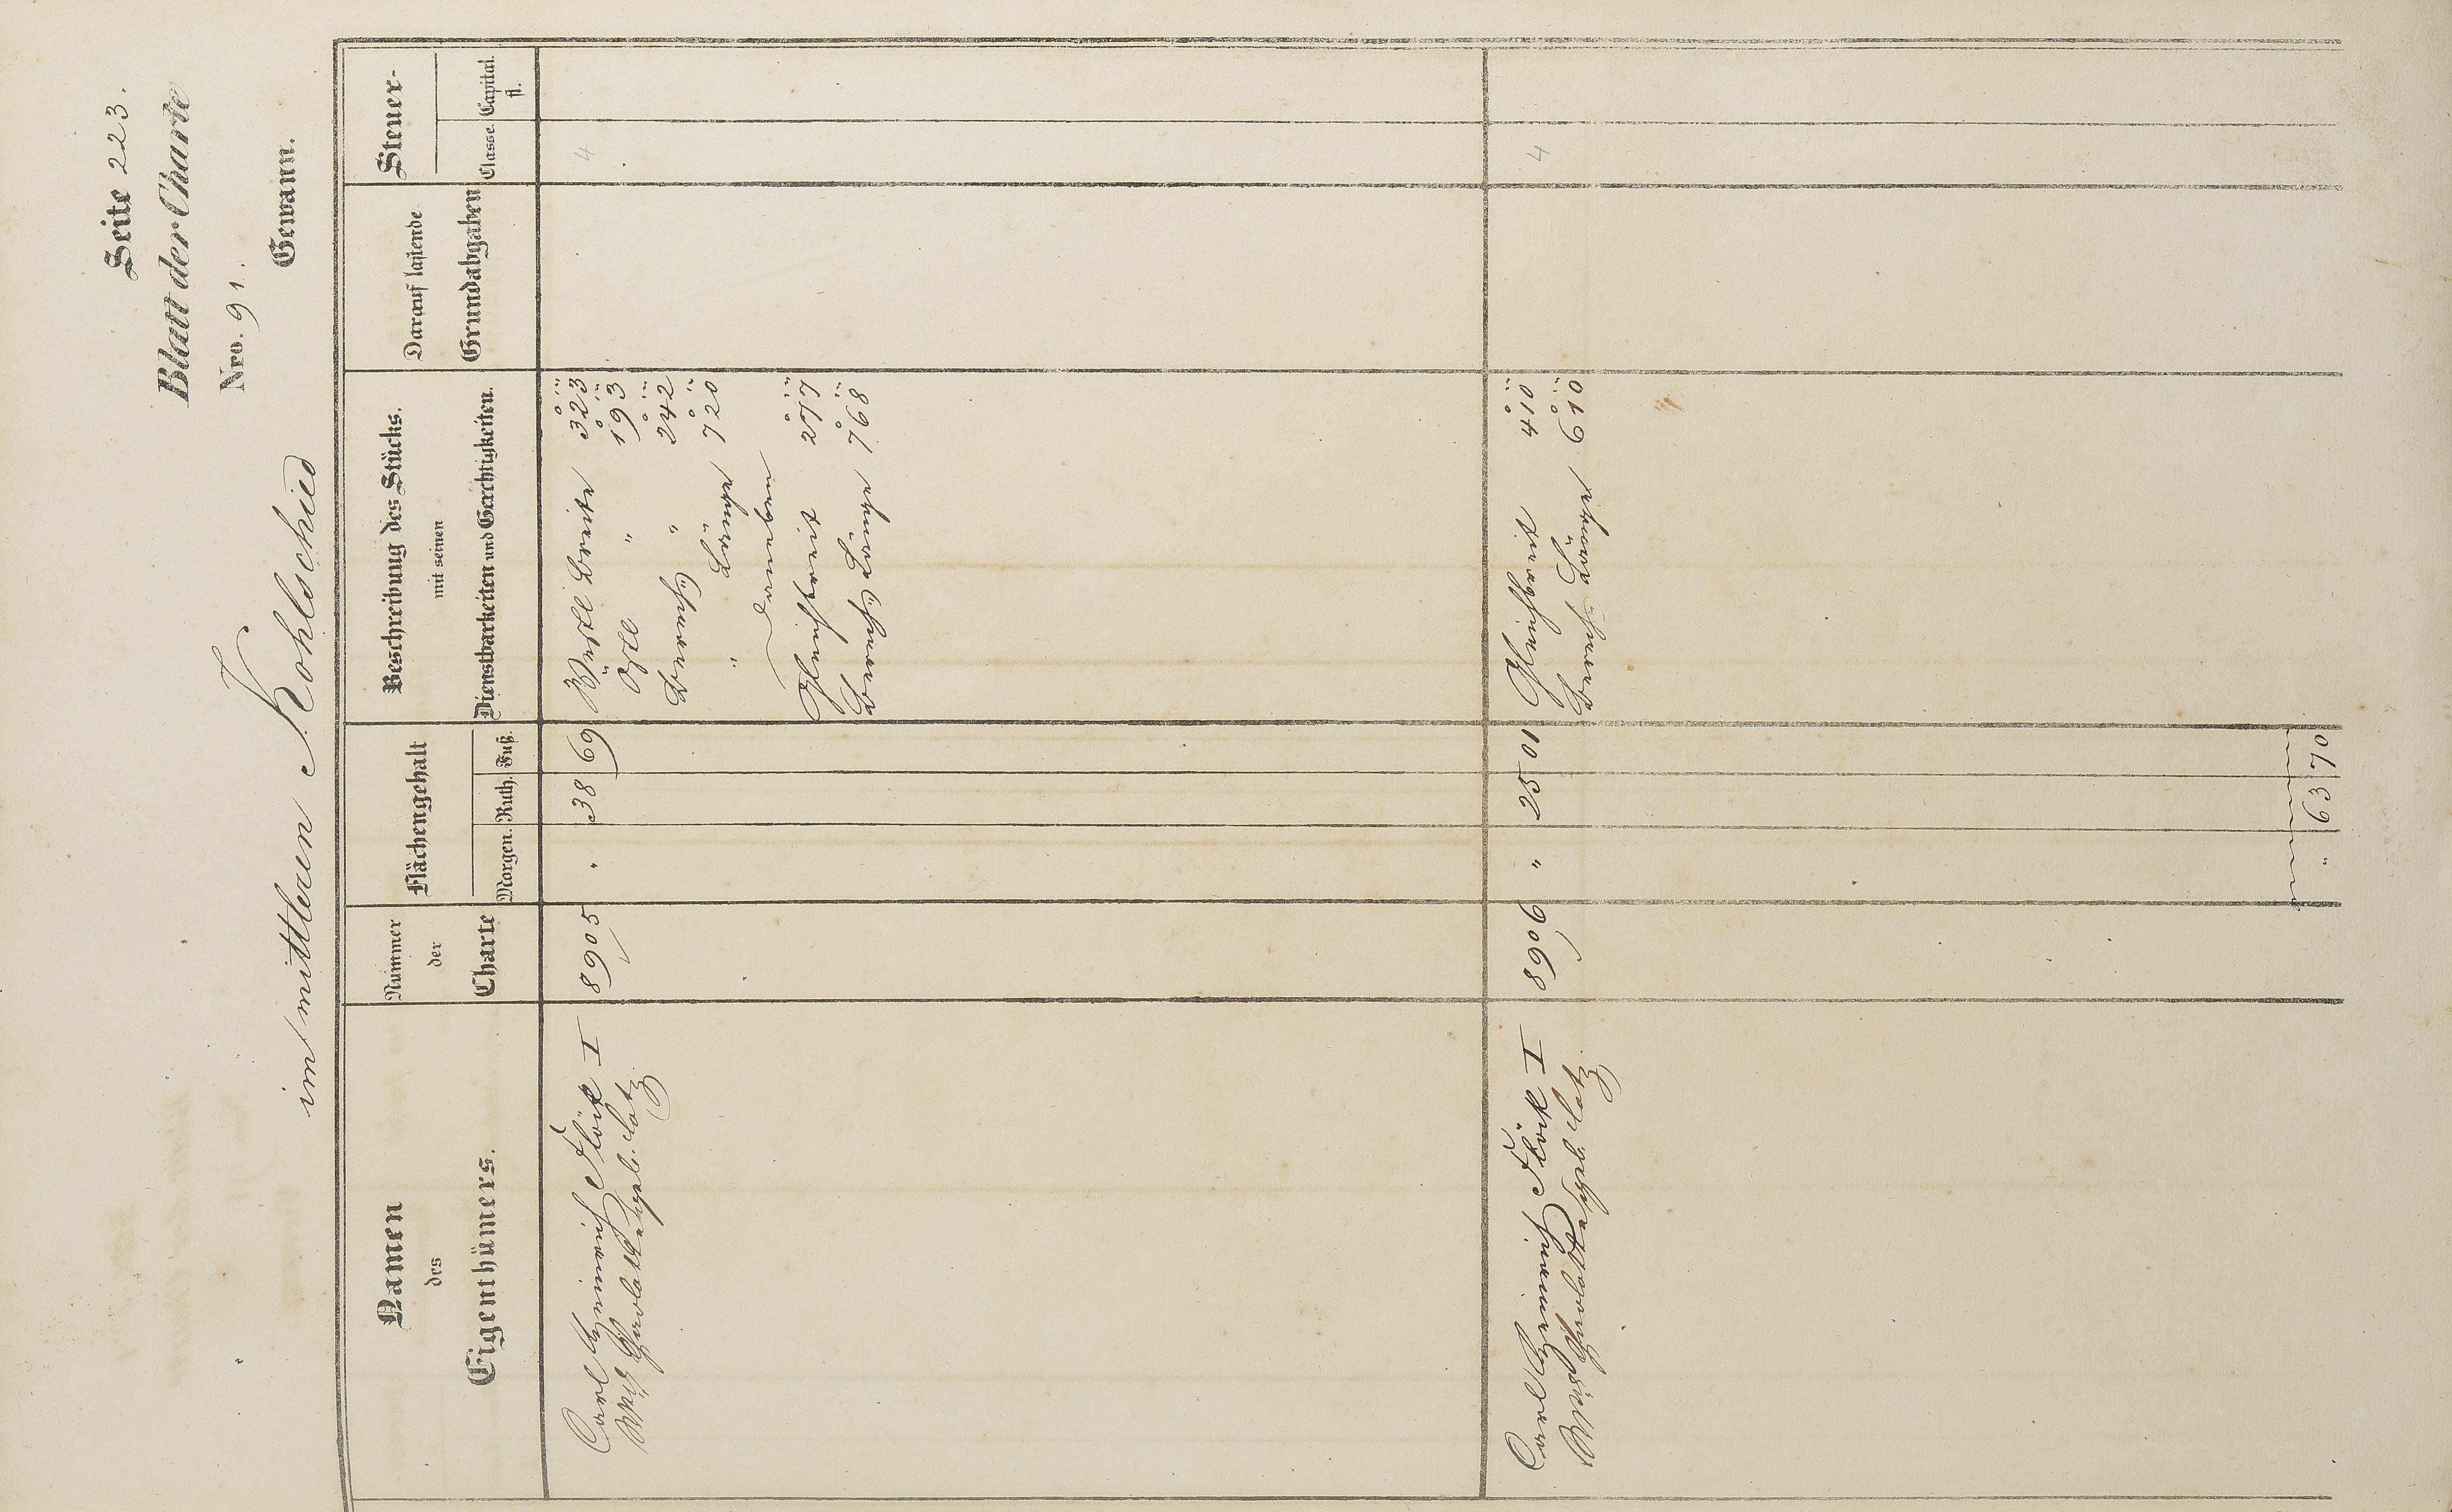 Seite 223.
Blatt der Charte
Nro. 91.
im mittleren Kohlschied Gewann.
Namen
des
Eigenthümers.
Nummer
der
Charte
Flächengehalt
Morgen. Ruth. Fuß.
Beschreibung des Stücks.
mit seinen
Dienstbarkeiten und Gerechtigkeiten.
Darauf lastende
Grundabgaben
Steuer-
Classe. Capital.
fl.
Carl Heinrich Flöck I 8905 " 38 69 Westl Breite 323 4
Östl " 193
" 242
" Länge 720
daneben
Gleichbreit 277
Länge 768
Carl Heinrich Flöck I 8906 " 25 01 Gleichbreit 410 4
Länge 610
" 63 70